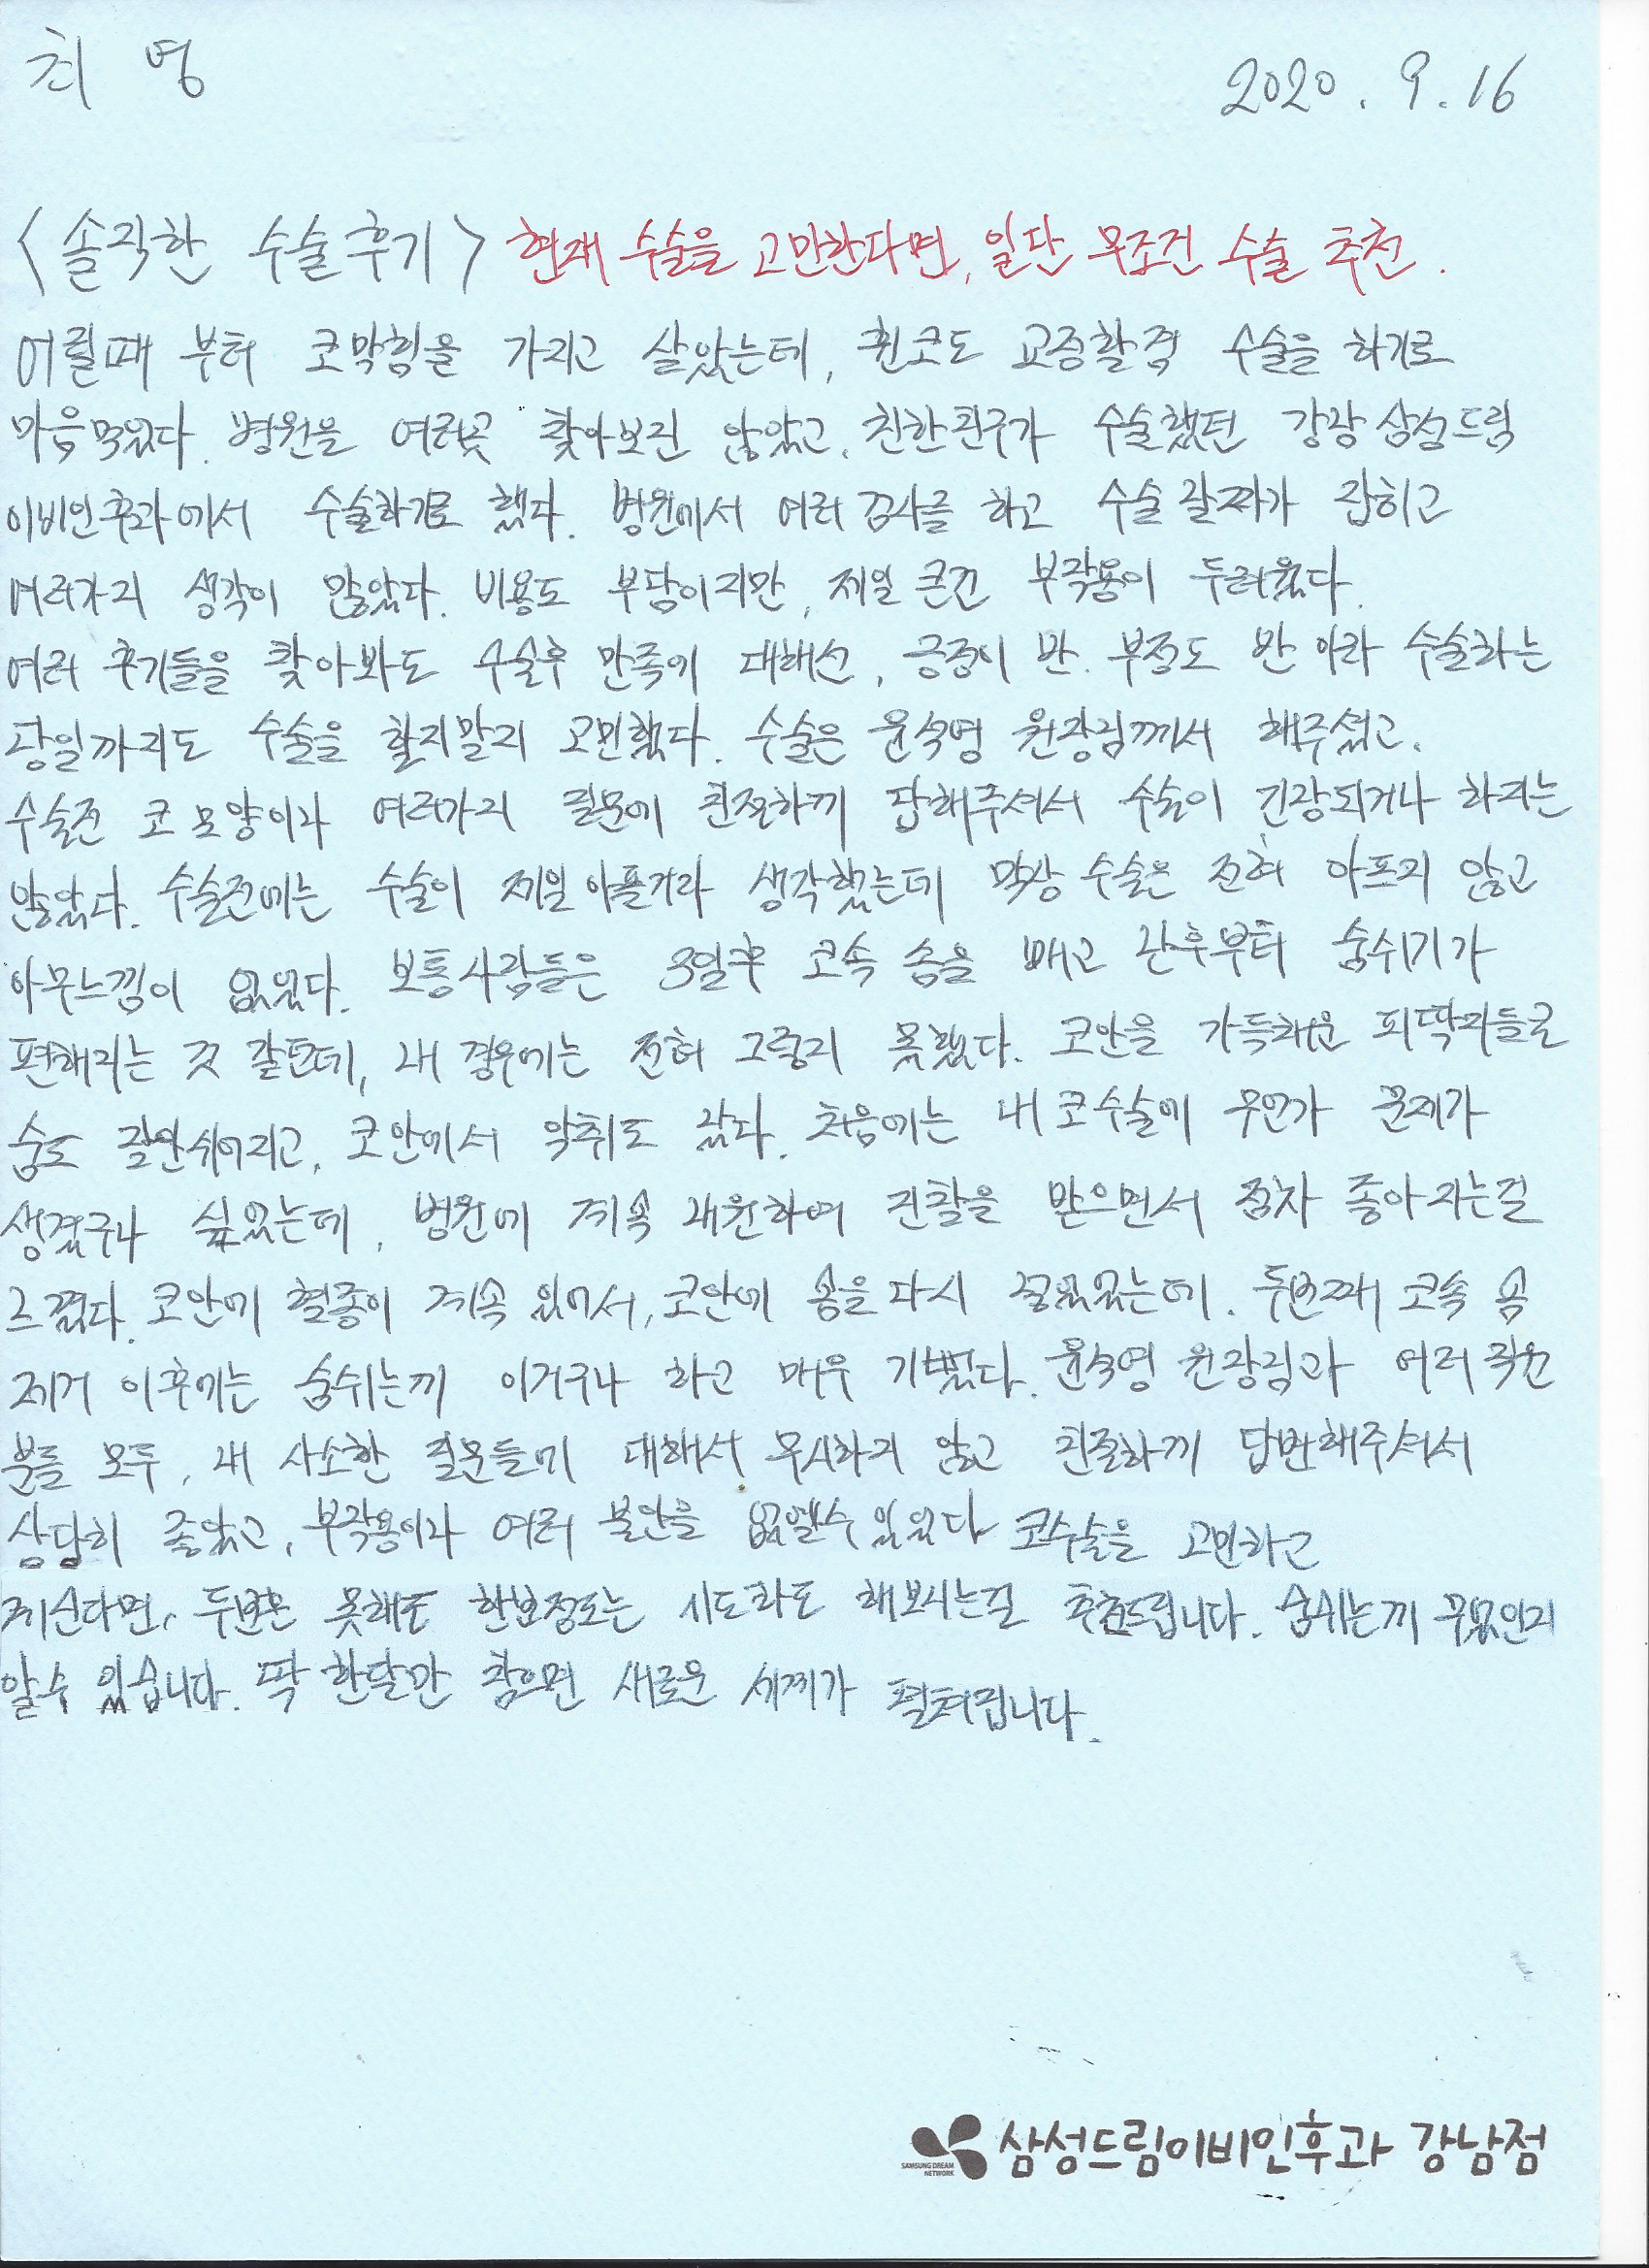 최 영
2020. 9. 16
<솔직한 수술후기> 현재 수술을 고민한다면, 일단 무조건 수술 추천.
어릴때 부터 코막힘을 가지고 살았는데, 휜코도 교정할겸 수술을 하기로
마음먹었다. 병원을 여러곳 찾아보진 않았고, 친한친구가 수술했던 강남 삼성드림
이비인후과에서 수술하기로 했다. 병원에서 여러 검사를 하고 수술 날짜가 잡히고
여러가지 생각이 많았다. 비용도 부담이지만, 제일 큰건 부작용이 두려웠다.
여러 후기들을 찾아봐도 수술후 만족에 대해선, 긍정이 반. 부정도 반 이라 수술하는
당일까지도 수술을 할지말지 고민했다. 수술은 윤석영 원장님께서 해주셨고,
수술전 코 모양이나 여러가지 질문에 친절하게 답해주셔서 수술이 긴장되거나 하지는
않았다. 수술전에는 수술이 제일 아플거라 생각했는데 막상 수술은 전혀 아프지 않고
아무느낌이 없었다. 보통사람들은 3일후 코속 솜을 빼고 난후부터 숨쉬기가
편해지는 것 같던데, 내 경우에는 전혀 그렇지 못했다. 코안을 가득채운 피딱지들로
숨도 잘안쉬어지고, 코안에서 악취도 났다. 처음에는 내 코수술에 무언가 문제가
생겼구나 싶었는데, 병원에 계속 내원하여 진찰을 받으면서 점차 좋아지는걸
느꼈다. 코안에 혈종이 계속 있어서, 코안에 솜을 다시 넣었었는데, 두번째 코속 솜
제거 이후에는 숨쉬는게 이거구나 하고 매우 기뻤다. 윤석영 원장님과 여러 직원
분들 모두, 내 사소한 질문들에 대해서 무시하지 않고 친절하게 답변해주셔서
상당히 좋았고, 부작용이나 여러 불안을 없앨수 있었다 코수술을 고민하고
계신다면, 두번은 못해도 한번정도는 시도라도 해보시는걸 추천드립니다. 숨쉬는게 무엇인지
알수 있습니다. 딱 한달만 참으면 새로운 세계가 펼쳐집니다.
SAMSUNG DREAM
NETWORK
삼성드림이비인후과 강남점